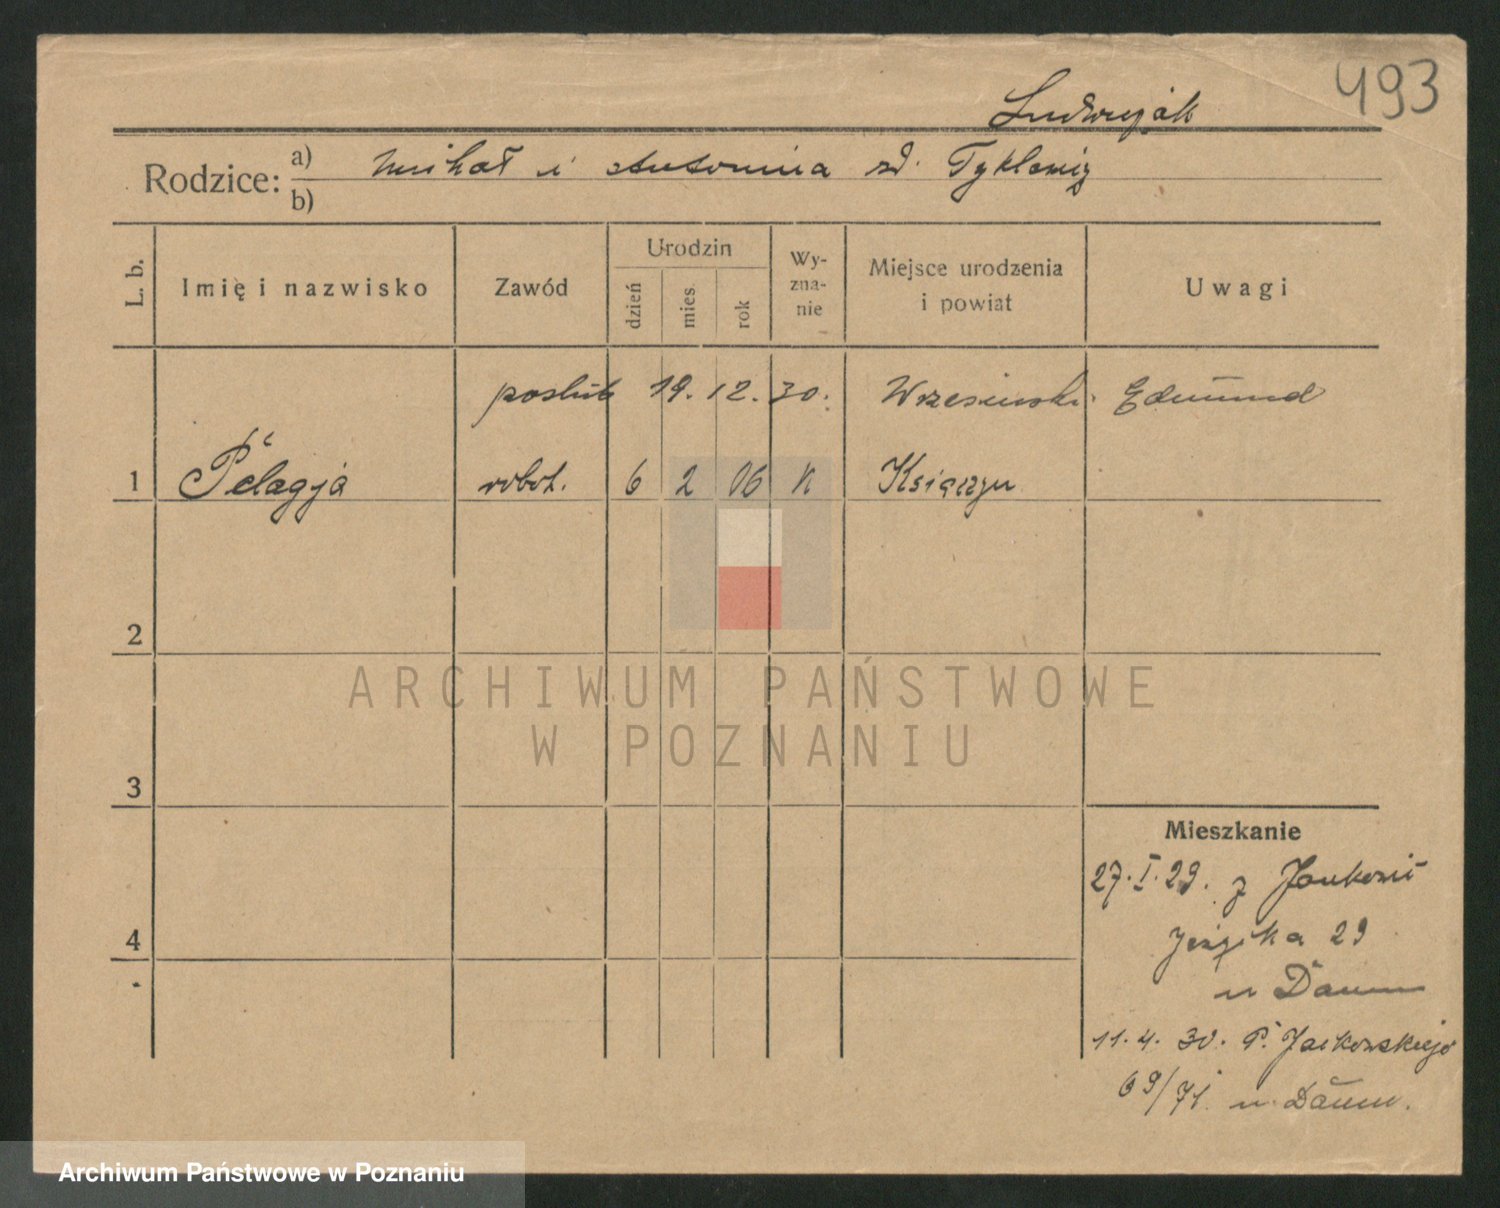 493
Ludwiżak
Rodzice: a) Michał i Antonina zd.
b)
L. b. Imię i nazwisko Zawód Urodzin dzień mies. rok Wyznanie Miejsce urodzenia i powiat Uwagi
poślub 19. 12. 30. Wrzesiński Edmund
1 Pelagja robot. 6 2 06 K
2
3
4
ARCHIWUM PAŃSTWOWE
W POZNANIU
Mieszkanie
27. I. 29. z
29
u Daum
11. 4. 30. P. Jackowskiego
69/71. u Daum.
Archiwum Państwowe w Poznaniu